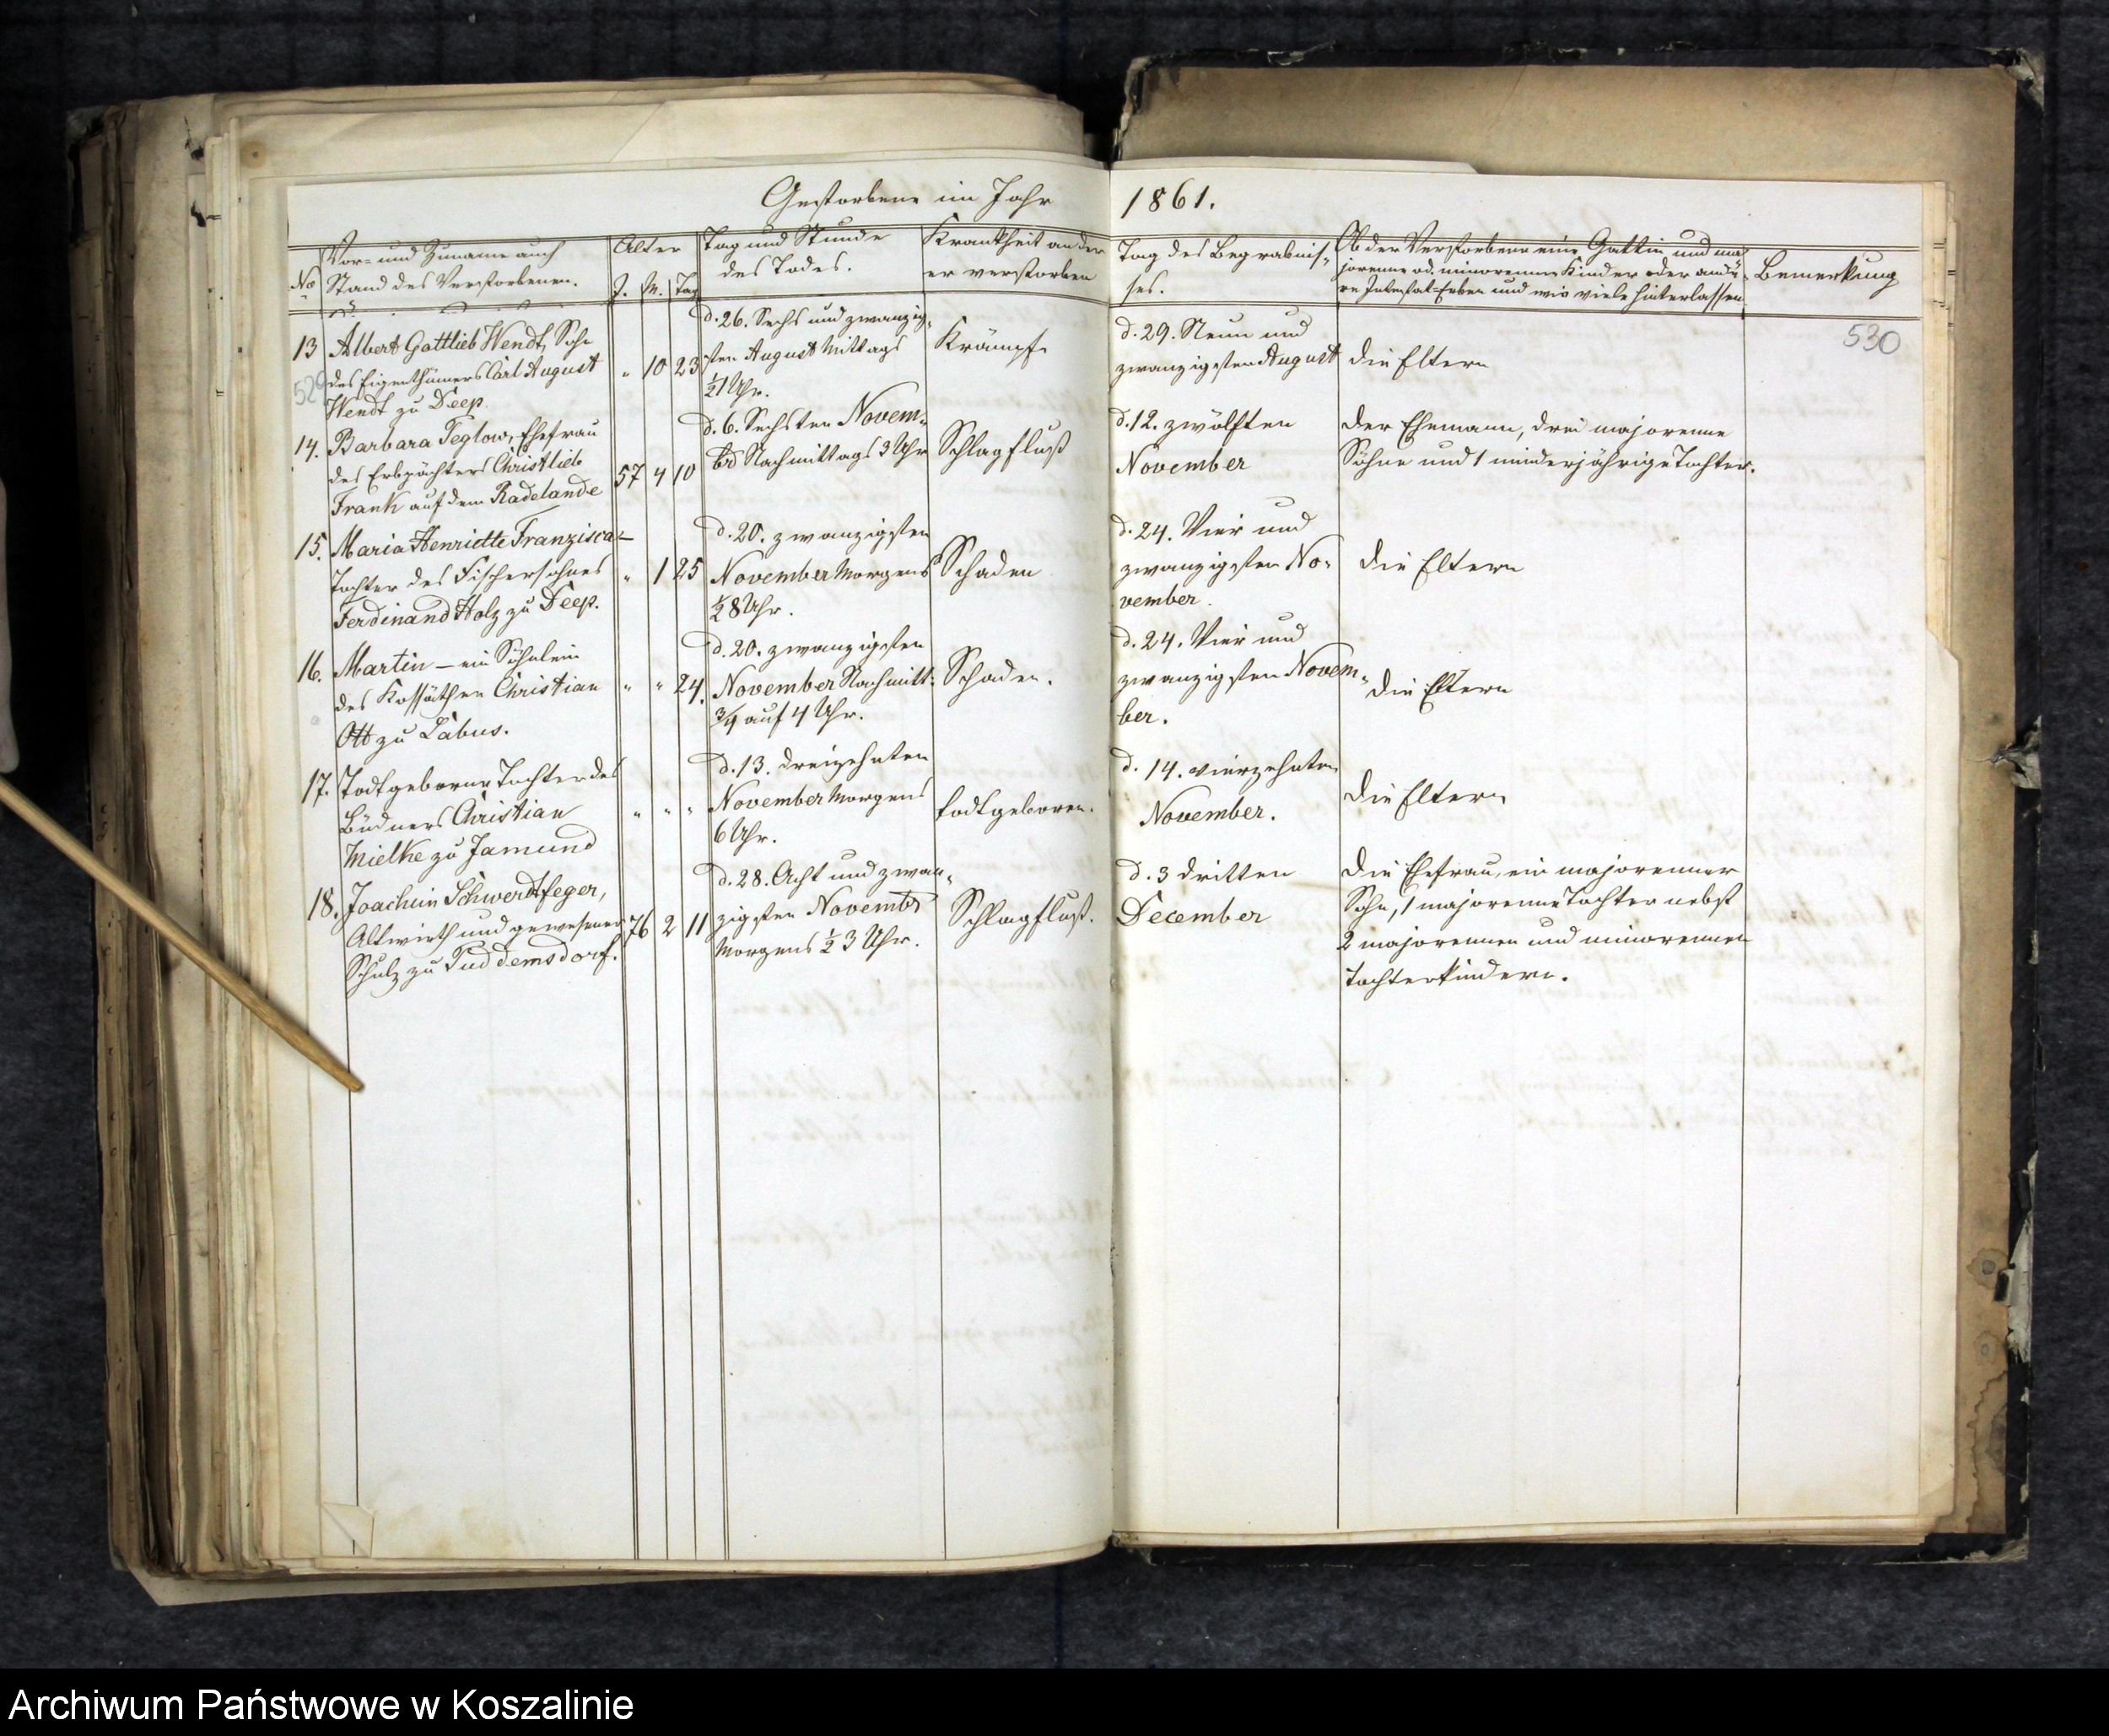 Gestorbene im Jahr 1861.
No
Vor- und Zuname auch
Stand des Verstorbenen.
Alter
J. M. Tag
Tag und Stunde
des Todes.
Krankheit an der
er verstorben
Tag des Begräbnis-
ses.
Ob der Verstorbene eine Gattin und ma-
jorenne od. minorenne Kinder oder ande-
re Intestat-Erben und wie viele hinterlassen
Bemerkung
530
13
Albert Gottlieb Wendt, Sohn
des Eigenthümers Carl August
Wendt zu Deep.
529
" 10 23
d. 26. Sechs und zwanzig-
sten August Mittags
½1 Uhr.
Krämpfe
d. 29. Neun und
zwanzigsten August
die Eltern
14.
Barbara Teglow, Ehefrau
des Erbpächters Christlieb
Frank auf dem Radelande
57 4 10
d. 6. Sechsten Novem-
br Nachmittags 3 Uhr
Schlagfluß
d. 12. zwölften
November
Der Ehemann, drei majorenne
Söhne und 1 minderjährige Tochter.
15.
Maria Henriette Franzisca –
Tochter des Fischersohnes
Ferdinand Holz zu Deep.
" 1 25
d. 20. zwanzigsten
November Morgens
½8 Uhr.
Schaden
d. 24. Vier und
zwanzigsten No-
vember.
die Eltern
16.
Martin – ein Söhnlein
des Kossäthen Christian
Ott zu Labus.
" " 24.
d. 20. zwanzigsten
November Nachmitt:
¾ auf 4 Uhr.
Schaden.
d. 24. Vier und
zwanzigsten Novem-
ber.
die Eltern
17.
Todtgeborne Tochter des
Büdners Christian
Mielke zu Jamund
" " "
d. 13. dreizehnten
November Morgens
6 Uhr.
todtgeboren.
d. 14. vierzehnten
November.
die Eltern
18.
Joachim Schwerdtfeger,
Altwirth und gewesener
Schulz zu Puddemsdorf.
76 2 11
d. 28. Acht und zwan-
zigsten Novembr
Morgens ½ 3 Uhr.
Schlagfluß.
d. 3 dritten
December
Die Ehefrau, ein majorenner
Sohn, 1 majorenne Tochter nebst
2 majorennen und minorennen
Tochterkindern.
Archiwum Państwowe w Koszalinie